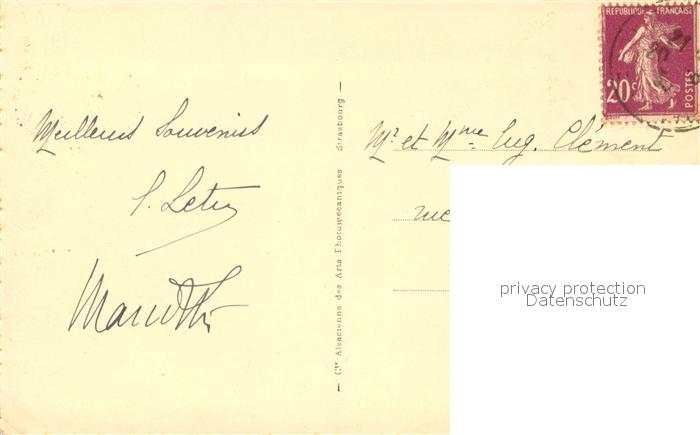 Meilleurs Souvenirs
Cie Alsacienne des Arts Photomécaniques Strasbourg
REPUBLIQUE FRANÇAISE
20c
POSTES
Mr et Mme Eug. Clément
rue
privacy protection
Datenschutz